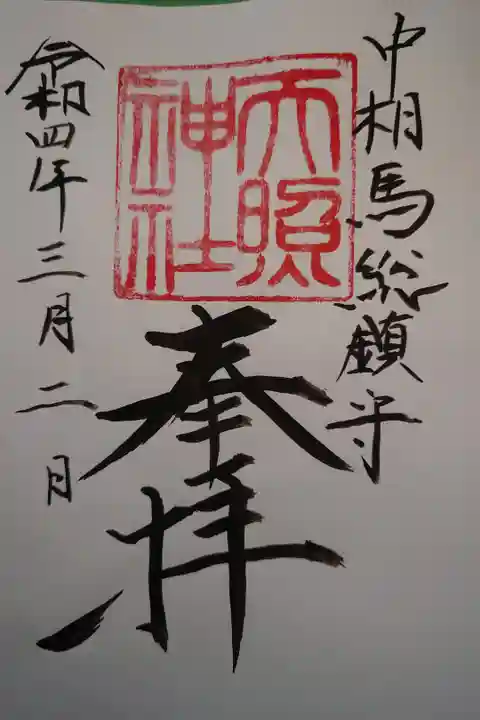 中相馬総鎮守
天照
神社
奉拝
令和四年三月二日